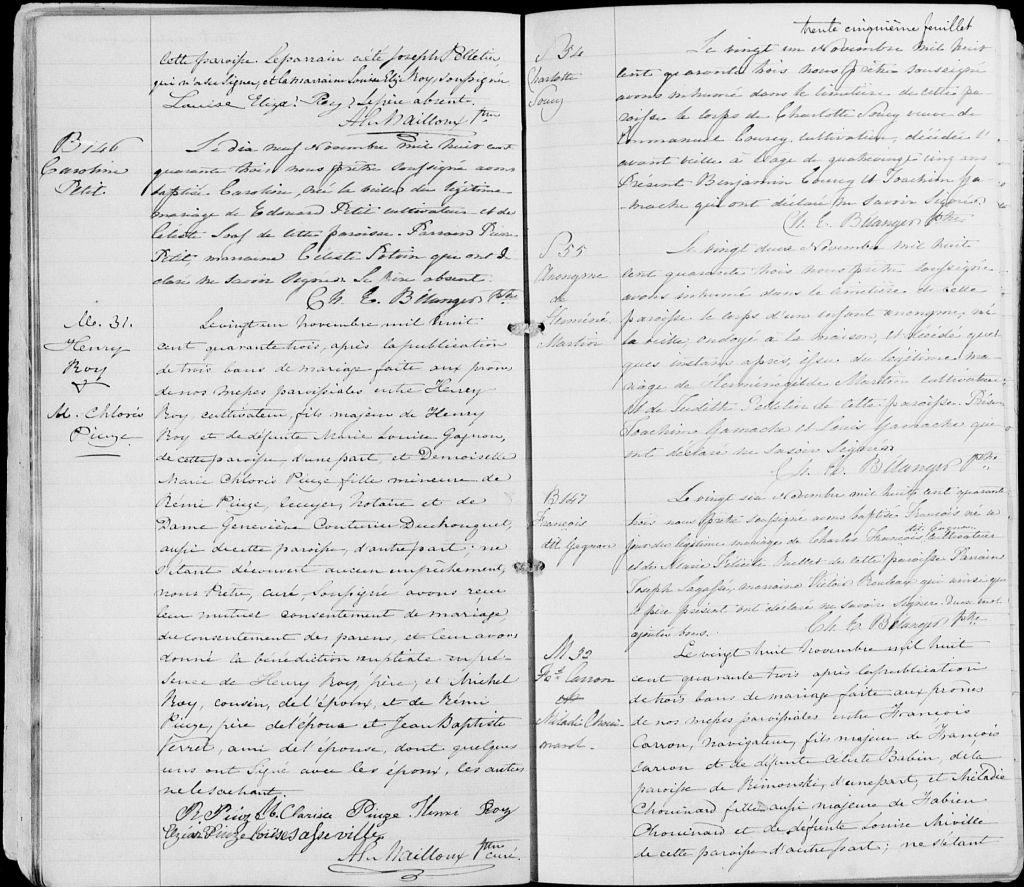 cette paroisse. Le parrain a été Joseph Pelletier,
qui n'a su signer, et la marraine Louise Eliza Roy, soussignée
Louise Eliza Roy Le père absent.
Al. Mailloux Ptre
B 146
Caroline
Petit
Le dix neuf Novembre mil huit cent
quarante trois nous prêtre soussigné avons
baptisé Caroline, née la veille du légitime
mariage de Edouard Petit cultivateur et de
Céleste de cette paroisse. Parrain
Petit marraine Céleste Potvin qui ont dé
claré ne savoir signer. Le Père absent.
Ch. E. Bélanger Ptre
M. 31.
Henry
Roy
&
M. Chloris
Piuze
Le vingt un novembre mil huit
cent quarante trois, après la publication
de trois bans de mariage faite aux prônes
de nos messes paroissiales entre Henry
Roy, cultivateur, fils majeur de Henry
Roy et de défunte Marie Louise Gagnon,
de cette paroisse, d'une part, et Demoiselle
Marie Chloris Piuze fille mineure de
Rémi Piuze, écuyer, Notaire et de
Dame Geneviève Couturier Duchouquet,
aussi de cette paroisse, d'autre part; ne
s'étant découvert aucun empêchement,
nous Prêtre, curé, soussigné avons reçu
leur mutuel consentement de mariage,
du consentement des parens, et leur avons
donné la bénédiction nuptiale en pré-
sence de Henry Roy, père, et Michel
Roy, cousin, de l'époux, et de Rémi
Piuze, père de l'épouse et Jean Baptiste
Verret, ami de l'épouse, dont quelques
uns ont signé avec les époux, les autres
ne le sachant.
R. Piuze M. Clarisse Piuze Henri Roy
Elzéar Piuze Louise Lasseville
Al. Mailloux Ptre
curé.
trente cinquième feuillet
S 54
Charlotte
Soucy
Le vingt un Novembre mil huit
cent quarante trois nous prêtre soussigné
avons inhumé dans le cimetière de cette pa
roisse le corps de Charlotte Soucy veuve de
Emmanuel Courcy cultivateur, décédée l'
avant veille à l'age de quatrevingt cinq ans
Présent Benjamin Courcy et Joachim Ga
mache qui ont déclaré ne savoir signer
Ch. E. Bélanger Ptre
S 55
Anonyme
de
Herméné
Martin
Le vingt deux Novembre mil huit
cent quarante trois nous prêtre soussigné
avons inhumé dans le cimetière de cette
paroisse le corps d'un enfant anonyme, né
la veille, ondoyé à la maison, et décédé quel
ques instans après, issu du légitime ma
riage de Herménégilde Martin cultivateur
et de Judith Pelletier de cette paroisse. Présens
Joachim Gamache et Louis Gamache qui
ont déclaré ne savoir signer
Ch. E. Bélanger Ptre
B 147
François
dit Gagnon
Le vingt six Novembre mil huit cent quarante
trois nous prêtre soussigné avons baptisé François né ce
dit Gagnon
jour du légitime mariage de Charles François cultivateur
et de Marie Félicité Ouellet de cette paroisse Parrain
Joseph Lagassé, marraine Rouleau qui ainsi que
le père présent ont déclaré ne savoir signer. Deux mots
ajoutés bons.
Ch. E. Bélanger Ptre
M 32
Fs. Carron
&
Méladie Choui-
nard.
Le vingt huit novembre mil huit
cent quarante trois après la publication
de trois bans de mariage faite aux prônes
de nos messes paroissiales entre François
Carron, navigateur, fils majeur de François
Carron et de défunte Céleste Babin, de la
paroisse de Rimouski, d'une part, et Méladie
Chouinard fille aussi majeure de Fabien
Chouinard et de défunte Louise Miville
de cette paroisse d'autre part; ne s'étant